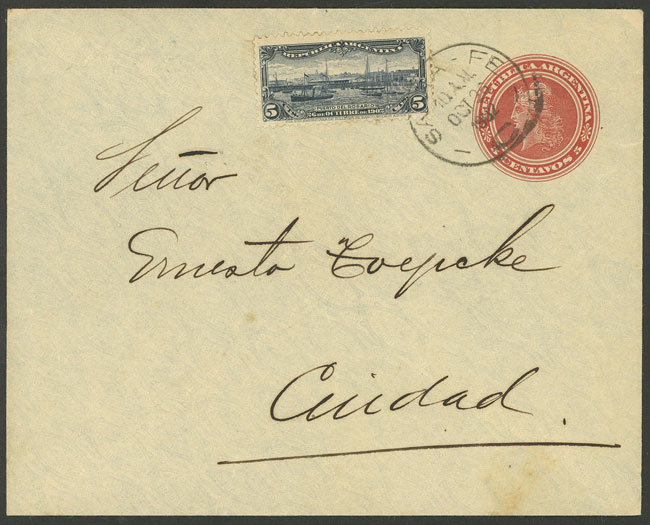 REPUBLICA ARGENTINA
5 PUERTO DEL ROSARIO 5
26 DE OCTUBRE DE 1902
SANTA-FE
10 A.M.
OCT 26
REPUBLICA ARGENTINA
CENTAVOS 5
Señor
Ernesto Toepcke
Ciudad.